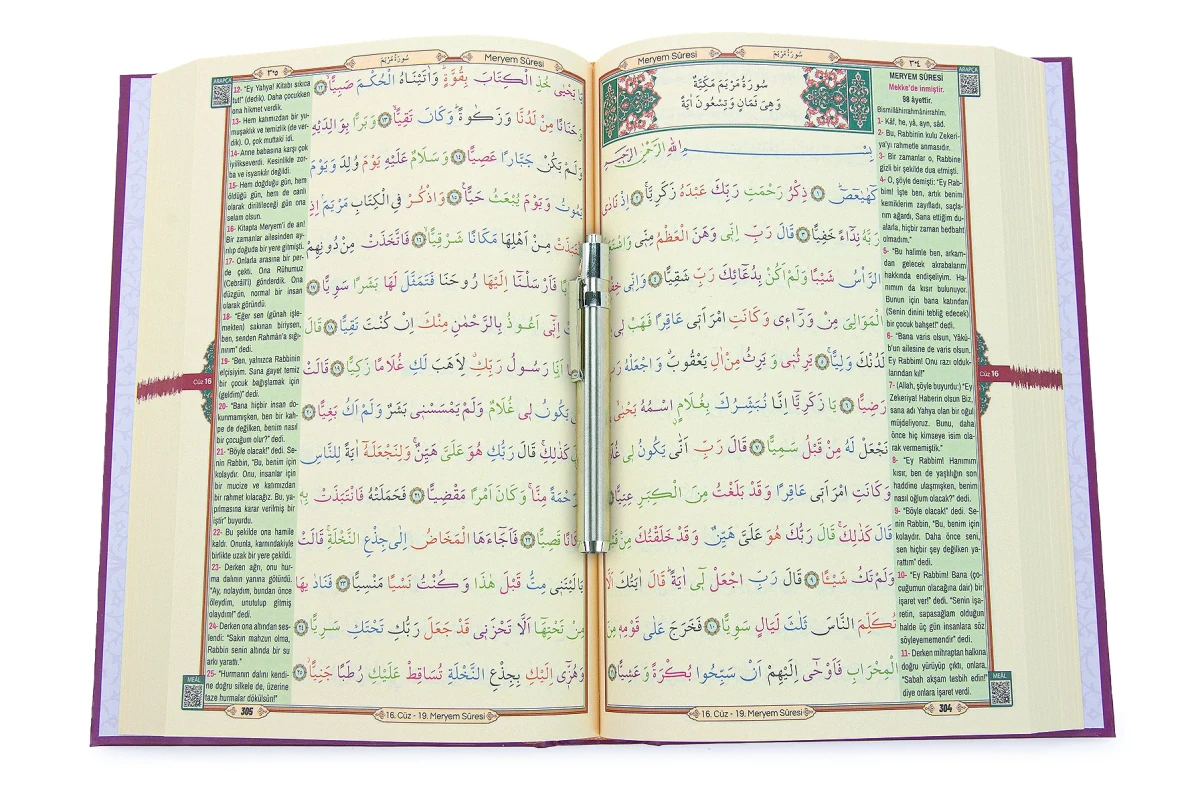 Meryem Sûresi
سُورَةُ مَرْيَمَ
٣٠٤
سُورَةُ مَرْيَمَ مَكِّيَّةٌ
وَهِيَ ثَمَانٍ وَتِسْعُونَ اٰيَةً
بِسْــــــمِ اللّٰهِ الرَّحْمٰنِ الرَّحٖيمِ
كٓهٰيٰعٓصٓ ﴿١﴾ ذِكْرُ رَحْمَتِ رَبِّكَ عَبْدَهُ زَكَرِيَّا ﴿٢﴾ اِذْ نَادٰى
رَبَّهُ نِدَٓاءً خَفِيًّا ﴿٣﴾ قَالَ رَبِّ اِنّٖي وَهَنَ الْعَظْمُ مِنّٖي
الرَّأْسُ شَيْبًا وَلَمْ اَكُنْ بِدُعَٓائِكَ رَبِّ شَقِيًّا ﴿٤﴾ وَاِنّٖي
الْمَوَالِيَ مِنْ وَرَٓاءٖي وَكَانَتِ امْرَاَتٖي عَاقِرًا فَهَبْ لٖي
لَدُنْكَ وَلِيًّا ﴿٥﴾ يَرِثُنٖي وَيَرِثُ مِنْ اٰلِ يَعْقُوبَ وَاجْعَلْهُ
رَضِيًّا ﴿٦﴾ يَا زَكَرِيَّٓا اِنَّا نُبَشِّرُكَ بِغُلَامٍ اسْمُهُ يَحْيٰى
نَجْعَلْ لَهُ مِنْ قَبْلُ سَمِيًّا ﴿٧﴾ قَالَ رَبِّ اَنّٰى يَكُونُ لٖي
وَكَانَتِ امْرَاَتٖي عَاقِرًا وَقَدْ بَلَغْتُ مِنَ الْكِبَرِ عِتِيًّا ﴿٨﴾
قَالَ كَذٰلِكَ قَالَ رَبُّكَ هُوَ عَلَيَّ هَيِّنٌ وَقَدْ خَلَقْتُكَ مِنْ
وَلَمْ تَكُ شَيْـًٔا ﴿٩﴾ قَالَ رَبِّ اجْعَلْ لٖٓي اٰيَةً قَالَ اٰيَتُكَ اَلَّا
تُكَلِّمَ النَّاسَ ثَلٰثَ لَيَالٍ سَوِيًّا ﴿١٠﴾ فَخَرَجَ عَلٰى قَوْمِهٖ مِنَ
الْمِحْرَابِ فَاَوْحٰٓى اِلَيْهِمْ اَنْ سَبِّحُوا بُكْرَةً وَعَشِيًّا ﴿١١﴾
ARAPÇA
MERYEM SÛRESİ
Mekke'de inmiştir.
98 âyettir.
Bismillâhirrahmânirrahîm.
1- Kâf, he, yâ, ayn, sâd.
2- Bu, Rabbinin kulu Zekeri-
ya'yı rahmetle anmasıdır.
3- Bir zamanlar o, Rabbine
gizli bir şekilde dua etmişti.
4- O, şöyle demişti: "Ey Rab-
bim! İşte ben, artık benim
kemiklerim zayıfladı, saçla-
rım ağardı, Sana ettiğim du-
alarla, hiçbir zaman bedbaht
olmadım."
5- "Bu halimle ben, arkam-
dan gelecek akrabalarım
hakkında endişeliyim. Ha-
nımım da kısır bulunuyor.
Bunun için bana katından
(Senin dinini tebliğ edecek)
bir çocuk bahşet!" dedi.
6- "Bana varis olsun, Yâkû-
b'un ailesine de varis olsun.
Ey Rabbim! Onu razı olduk-
larından kıl!"
7- (Allah, şöyle buyurdu:) "Ey
Zekeriya! Haberin olsun Biz,
sana adı Yahya olan bir oğul
müjdeliyoruz. Bunu, daha
önce hiç kimseye isim ola-
rak vermemiştik."
8- "Ey Rabbim! Hanımım
kısır, ben de yaşlılığın son
haddine ulaşmışken, benim
nasıl oğlum olacak?" dedi.
9- "Böyle olacak!" dedi. Se-
nin Rabbin, "Bu, benim için
kolaydır. Daha önce seni,
sen hiçbir şey değilken ya-
rattım" dedi.
10- "Ey Rabbim! Bana (ço-
çuğumun olacağına dair) bir
işaret ver!" dedi. "Senin işa-
retin, sapasağlam olduğun
halde üç gün insanlara söz
söyleyememendir" dedi.
11- Derken mihraptan halkına
doğru yürüyüp çıktı, onlara,
"Sabah akşam tesbih edin!"
diye onlara işaret verdi.
MEÂL
Cüz 16
16. Cüz - 19. Meryem Sûresi
304
٣٠٥
سُورَةُ مَرْيَمَ
Meryem Sûresi
يَا يَحْيٰى خُذِ الْكِتَابَ بِقُوَّةٍ وَاٰتَيْنَاهُ الْحُكْمَ صَبِيًّا ﴿١٢﴾
وَحَنَانًا مِنْ لَدُنَّا وَزَكٰوةً وَكَانَ تَقِيًّا ﴿١٣﴾ وَبَرًّا بِوَالِدَيْهِ
وَلَمْ يَكُنْ جَبَّارًا عَصِيًّا ﴿١٤﴾ وَسَلَامٌ عَلَيْهِ يَوْمَ وُلِدَ وَيَوْمَ
يَمُوتُ وَيَوْمَ يُبْعَثُ حَيًّا ﴿١٥﴾ وَاذْكُرْ فِي الْكِتَابِ مَرْيَمَ اِذِ
انْتَبَذَتْ مِنْ اَهْلِهَا مَكَانًا شَرْقِيًّا ﴿١٦﴾ فَاتَّخَذَتْ مِنْ دُونِهِمْ
فَاَرْسَلْنَٓا اِلَيْهَا رُوحَنَا فَتَمَثَّلَ لَهَا بَشَرًا سَوِيًّا ﴿١٧﴾
اِنّٖٓي اَعُوذُ بِالرَّحْمٰنِ مِنْكَ اِنْ كُنْتَ تَقِيًّا ﴿١٨﴾ قَالَ
اَنَا رَسُولُ رَبِّكِ لِاَهَبَ لَكِ غُلَامًا زَكِيًّا ﴿١٩﴾ قَالَتْ
يَكُونُ لٖي غُلَامٌ وَلَمْ يَمْسَسْنٖي بَشَرٌ وَلَمْ اَكُ بَغِيًّا ﴿٢٠﴾
كَذٰلِكِ قَالَ رَبُّكِ هُوَ عَلَيَّ هَيِّنٌ وَلِنَجْعَلَهُٓ اٰيَةً لِلنَّاسِ
وَرَحْمَةً مِنَّا وَكَانَ اَمْرًا مَقْضِيًّا ﴿٢١﴾ فَحَمَلَتْهُ فَانْتَبَذَتْ بِهٖ
مَكَانًا قَصِيًّا ﴿٢٢﴾ فَاَجَٓاءَهَا الْمَخَاضُ اِلٰى جِذْعِ النَّخْلَةِ قَالَتْ
يَا لَيْتَنٖي مِتُّ قَبْلَ هٰذَا وَكُنْتُ نَسْيًا مَنْسِيًّا ﴿٢٣﴾ فَنَادٰيهَا
مِنْ تَحْتِهَٓا اَلَّا تَحْزَنٖي قَدْ جَعَلَ رَبُّكِ تَحْتَكِ سَرِيًّا ﴿٢٤﴾
وَهُزّٖٓي اِلَيْكِ بِجِذْعِ النَّخْلَةِ تُسَاقِطْ عَلَيْكِ رُطَبًا جَنِيًّا ﴿٢٥﴾
ARAPÇA
12- "Ey Yahya! Kitabı sıkıca
tut!" (dedik). Daha çocukken
ona hikmet verdik.
13- Hem katımızdan bir yu-
muşaklık ve temizlik (de ver-
dik). O, çok muttaki idi.
14- Anne babasına karşı çok
iyilikseverdi. Kesinlikle zor-
ba ve isyankâr değildi.
15- Hem doğduğu gün, hem
öldüğü gün, hem de canlı
olarak diriltileceği gün ona
selam olsun.
16- Kitapta Meryem'i de an!
Bir zamanlar ailesinden ay-
rılıp doğuda bir yere gitmişti.
17- Onlarla arasına bir per-
de çekti. Ona Rûhumuz
(Cebrâîl'i) gönderdik. Ona
düzgün, normal bir insan
olarak göründü.
18- "Eğer sen (günah işle-
mekten) sakınan biriysen,
ben, senden Rahmân'a sığı-
nırım" dedi.
19- "Ben, yalnızca Rabbinin
elçisiyim. Sana gayet temiz
bir çocuk bağışlamak için
(geldim)" dedi.
20- "Bana hiçbir insan do-
kunmamışken, ben bir kah-
pe de değilken, benim nasıl
bir çocuğum olur?" dedi.
21- "Böyle olacak!" dedi. Se-
nin Rabbin, "Bu, benim için
kolaydır. Onu, insanlar için
bir mucize ve katımızdan
bir rahmet kılacağız. Bu, ya-
pılmasına karar verilmiş bir
iştir" buyurdu.
22- Bu şekilde ona hamile
kaldı. Onunla, karnındakiyle
birlikte uzak bir yere çekildi.
23- Derken ağrı, onu hur-
ma dalının yanına götürdü.
"Ay, nolaydım, bundan önce
öleydim, unutulup gitmiş
olaydım!" dedi.
24- Derken ona altından ses-
lendi: "Sakın mahzun olma,
Rabbin senin altında bir su
arkı yarattı."
25- "Hurmanın dalını kendi-
ne doğru silkele de, üzerine
taze hurmalar dökülsün!"
MEÂL
Cüz 16
305
16. Cüz - 19. Meryem Sûresi